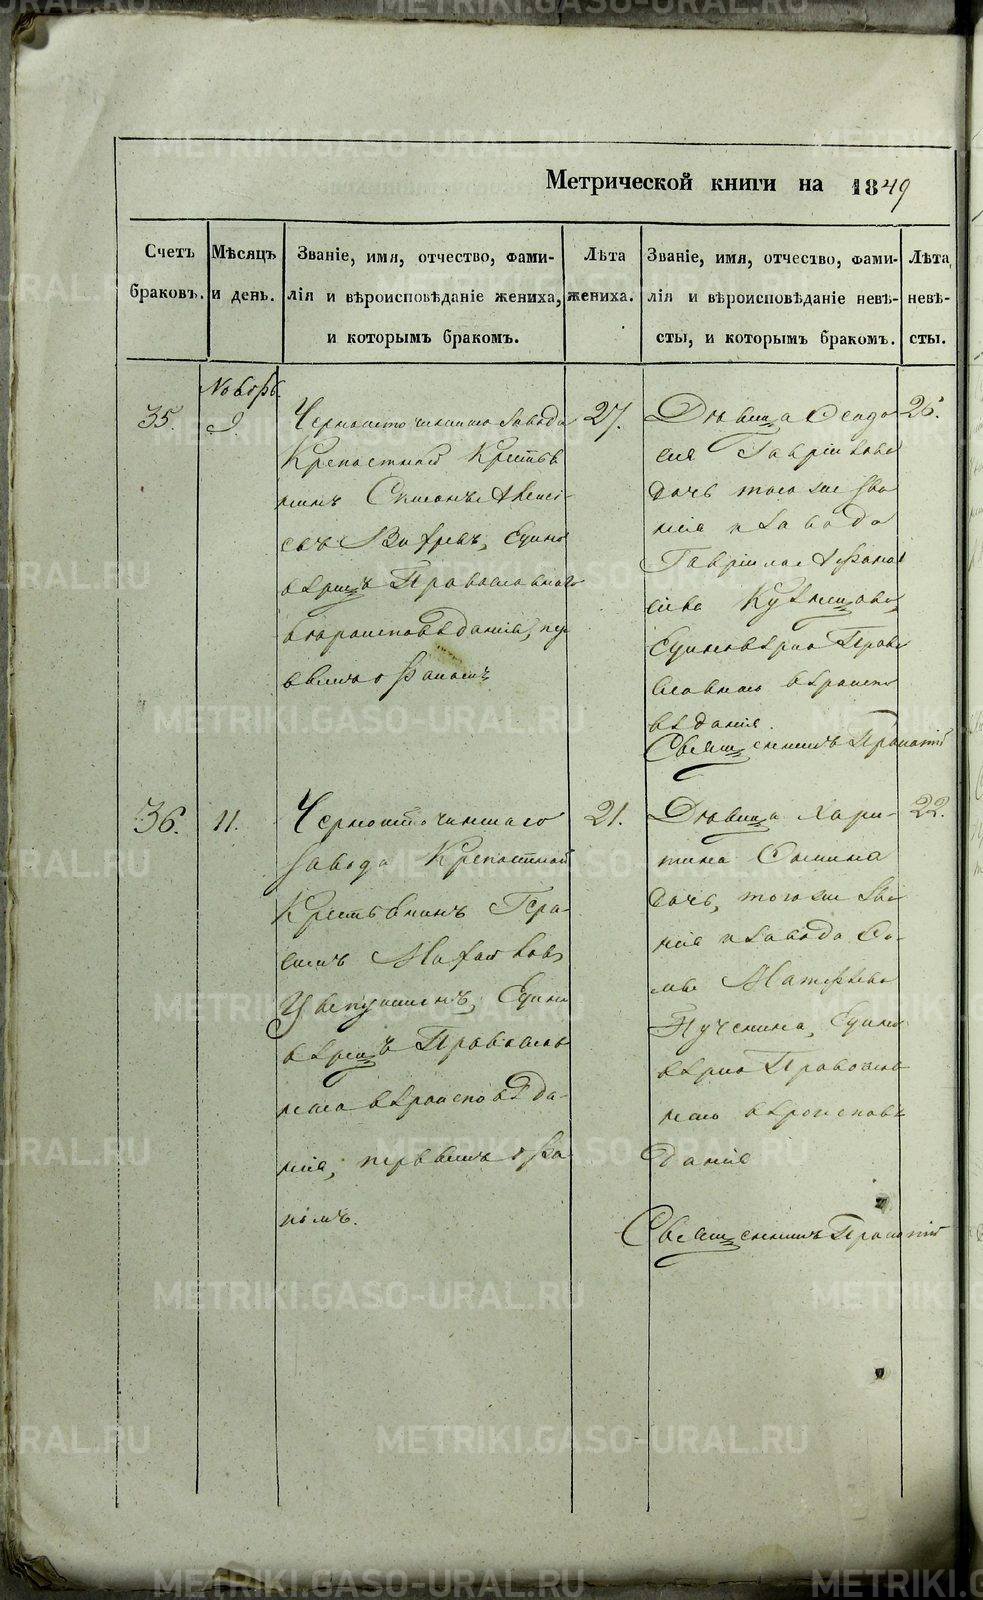 Метрической книги на 1849
Счетъ браковъ.
Мѣсяцъ и день.
Званіе, имя, отчество, фами-
лія и вѣроисповѣданіе жениха,
и которымъ бракомъ.
Лѣта жениха.
Званіе, имя, отчество, фами-
лія и вѣроисповѣданіе невѣ-
сты, и которымъ бракомъ.
Лѣта невѣ-
сты.
35.
Ноябрь.
9.
Черноисточинскаго завода
Крепостный Крестья
нинъ Симонъ Алексѣ-
евъ
Едино
вѣрецъ Православнаго
вѣроисповѣданія, пер
вымъ бракомъ
27.
Дѣвица Феодо
сія Гаврилова
дочь того же зва
нія и завода
Гаврила Афонас
сіева Кузнецова,
Единовѣрно Право
славнаго вѣроиспо
вѣданія.
Священникъ Игнатій
26.
36.
11.
Черноисточинскаго
завода Крепостный
Крестьянинъ Гера-
симъ
Едино
вѣрецъ Православ
наго вѣроисповѣда-
нія, первымъ бра
комъ.
21.
Дѣвица Хари-
тина Сомина
дочь, того же зва
нія и завода Со-
мы Матфѣева
Пученкина, Едино
вѣрно Православ
наго вѣроисповѣ
данія
Священникъ Игнатій
22.
METRIKI.GASO-URAL.RU